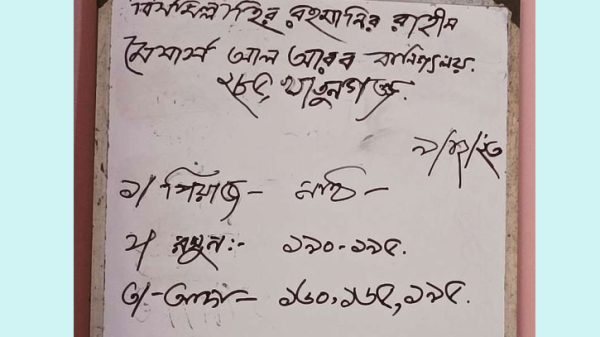 বিসমিল্লাহির রহমানির রাহীম
মেসার্স আল আরব বানিজ্যলয়.
২৮৫, খাতুনগঞ্জ.
৯/১২/২৩
১/ পিয়াজ - নাই -
২/ রসুন:- ১৯০-১৯৫.
৩/- আদা - ১৬০, ১৬৫, ১৯৫.